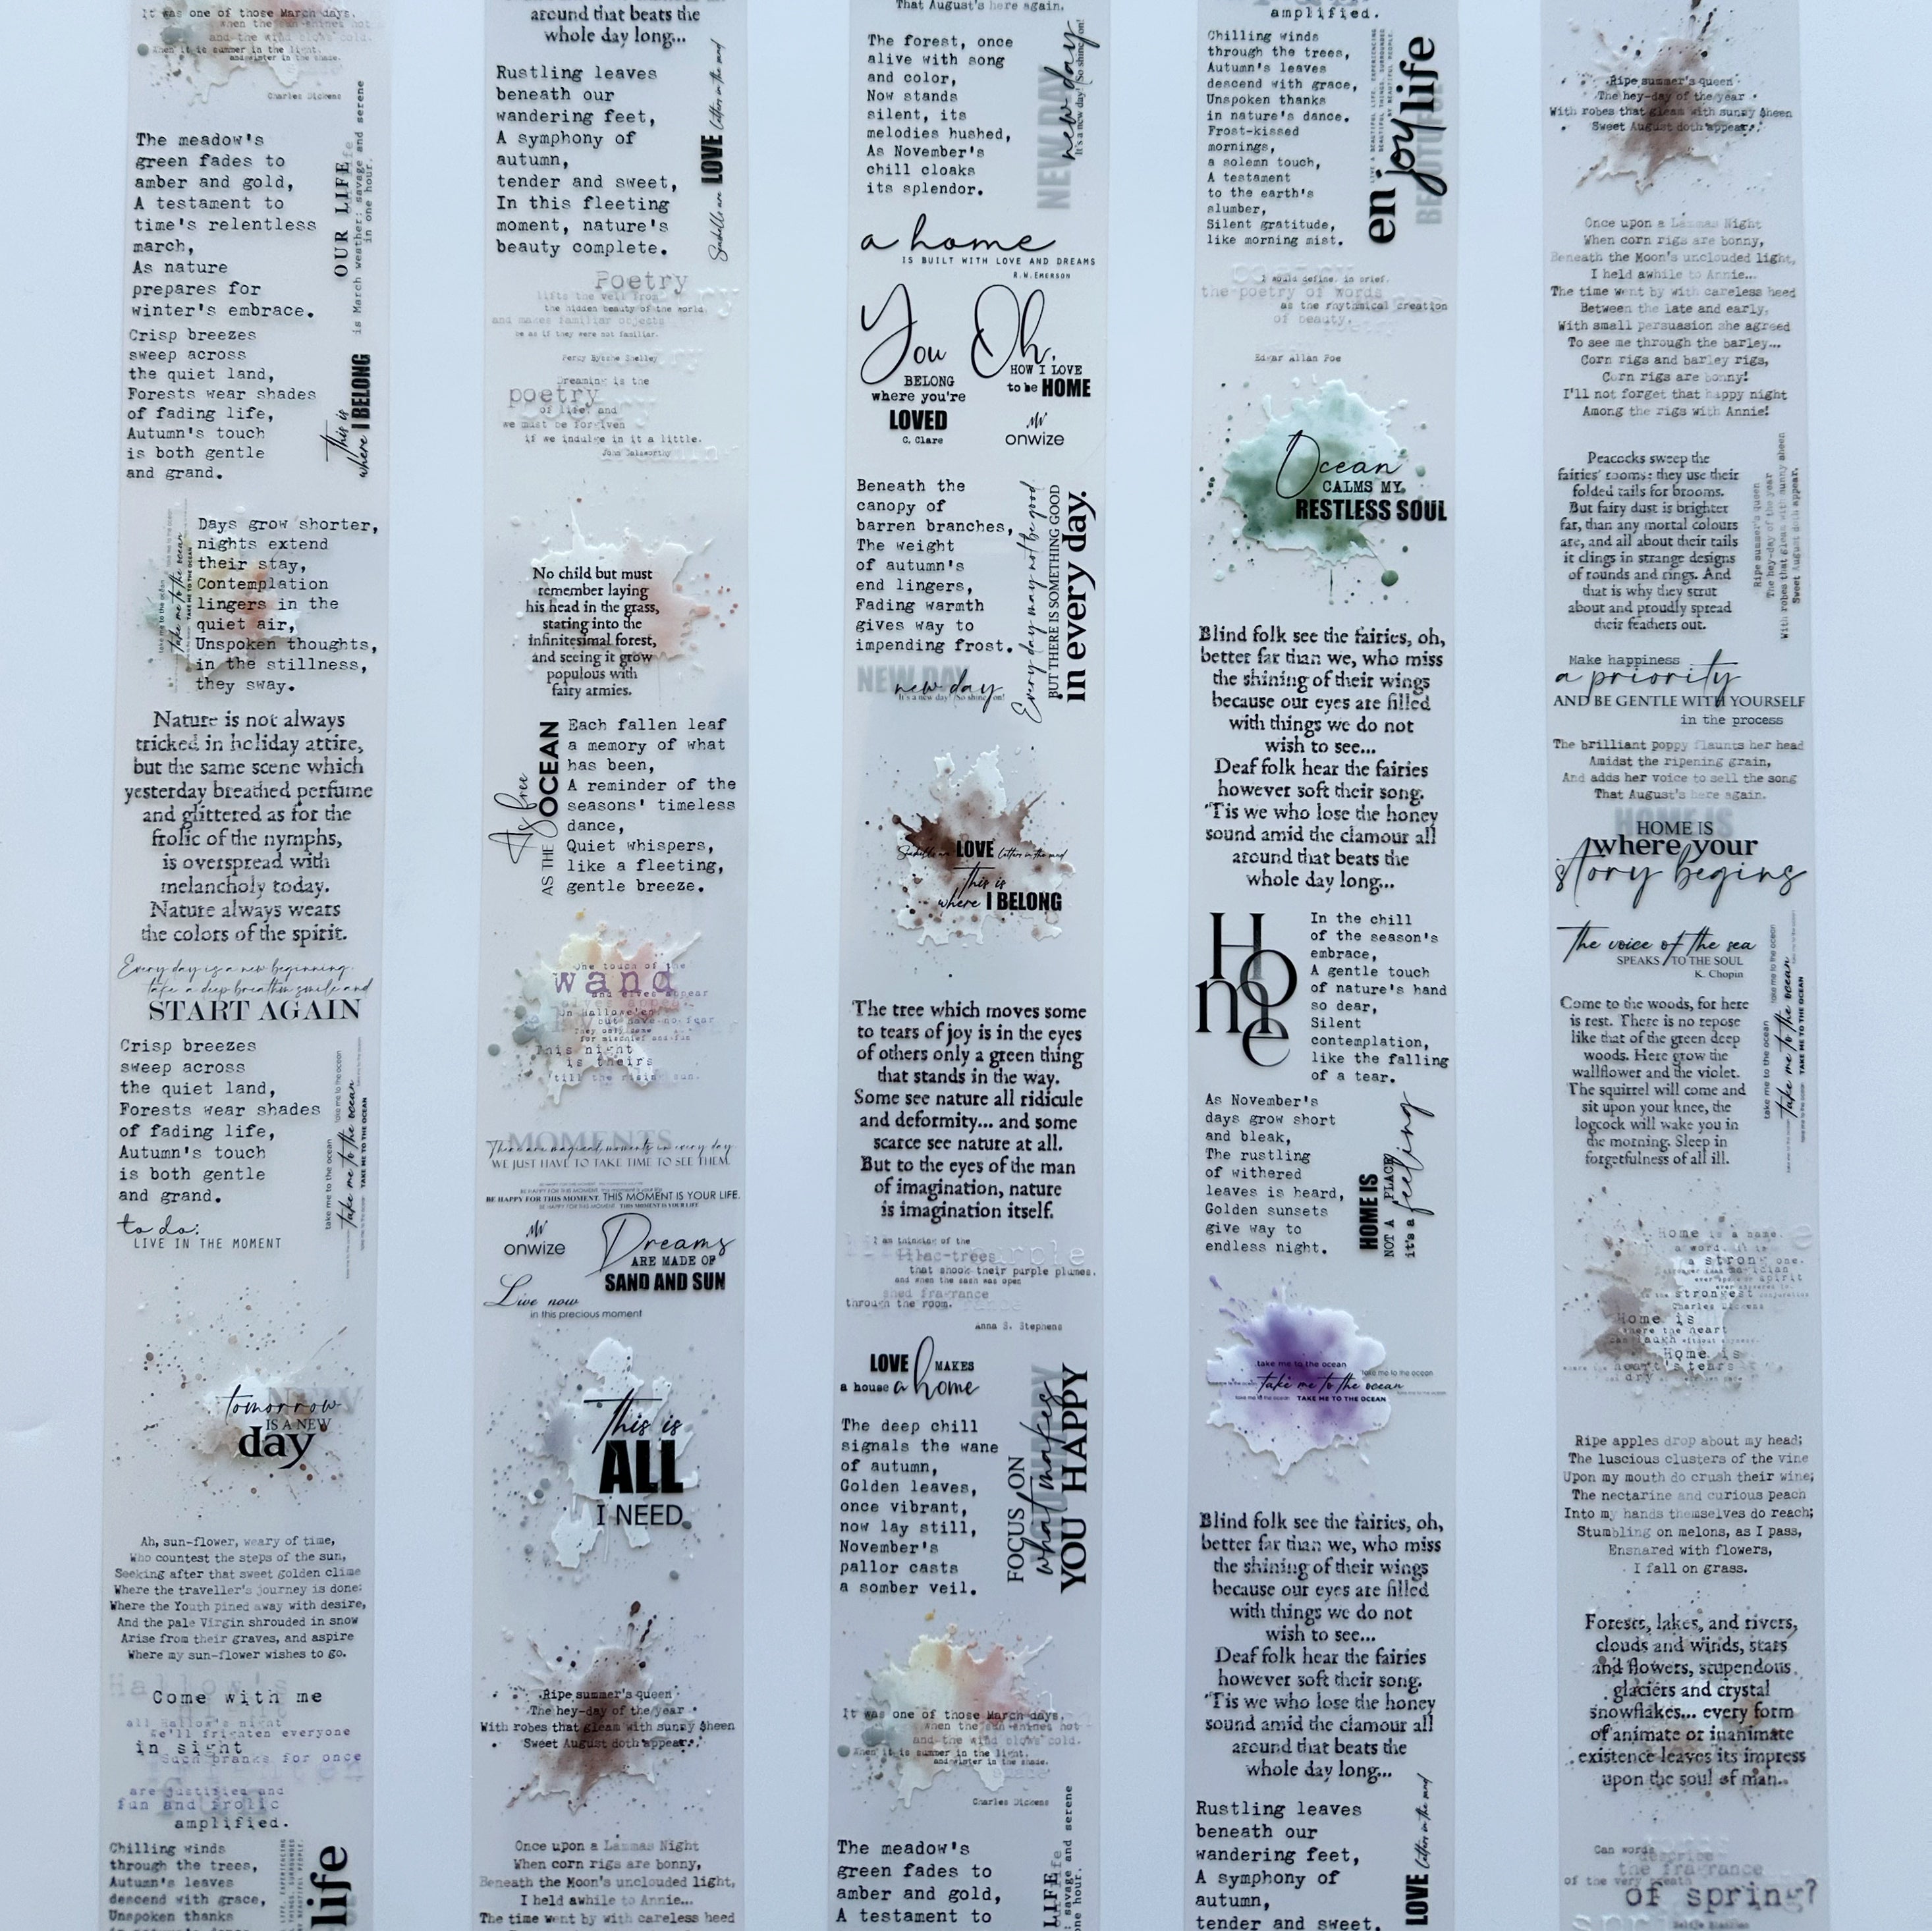 It was one of those March days.
when the sun shines hot
and the wind blows cold.
When it is summer in the light.
and winter in the shade.
Charles Dickens
The meadow's
green fades to
amber and gold,
A testament to
time's relentless
march,
As nature
prepares for
winter's embrace.
OUR LIFE
is March weather: savage and serene
in one hour.
Crisp breezes
sweep across
the quiet land,
Forests wear shades
of fading life,
Autumn's touch
is both gentle
and grand.
This is
where I BELONG
Days grow shorter,
nights extend
their stay,
Contemplation
lingers in the
quiet air,
Unspoken thoughts,
in the stillness,
they sway.
take me to the ocean
take me to the ocean
TAKE ME TO THE OCEAN
Nature is not always
tricked in holiday attire,
but the same scene which
yesterday breathed perfume
and glittered as for the
frolic of the nymphs,
is overspread with
melancholy today.
Nature always wears
the colors of the spirit.
Every day is a new beginning.
take a deep breath smile and
START AGAIN
Crisp breezes
sweep across
the quiet land,
Forests wear shades
of fading life,
Autumn's touch
is both gentle
and grand.
take me to the ocean
take me to the ocean
take me to the ocean
TAKE ME TO THE OCEAN
to do:
LIVE IN THE MOMENT
NEW
tomorrow
IS A NEW
day
Ah, sun-flower, weary of time,
Who countest the steps of the sun,
Seeking after that sweet golden clime
Where the traveller's journey is done;
Where the Youth pined away with desire,
And the pale Virgin shrouded in snow
Arise from their graves, and aspire
Where my sun-flower wishes to go.
Come with me
all Hallow's night
We'll frighten everyone
in sight
Such pranks for once
are justified and
fun and frolic
amplified.
Chilling winds
through the trees,
Autumn's leaves
descend with grace,
Unspoken thanks
life
around that beats the
whole day long...
Rustling leaves
beneath our
wandering feet,
A symphony of
autumn,
tender and sweet,
In this fleeting
moment, nature's
beauty complete.
Seashells are LOVE letters in the sand
Poetry
lifts the veil from
the hidden beauty of the world
and makes familiar objects
be as if they were not familiar.
Percy Bysshe Shelley
Dreaming is the
poetry
of life, and
we must be forgiven
if we indulge in it a little.
John Galsworthy
No child but must
remember laying
his head in the grass,
staring into the
infinitesimal forest,
and seeing it grow
populous with
fairy armies.
As free
AS THE OCEAN
Each fallen leaf
a memory of what
has been,
A reminder of the
seasons' timeless
dance,
Quiet whispers,
like a fleeting,
gentle breeze.
One touch of the
wand
and elves appear
On Hallowe'en
but have no fear
They only come
for mischief and fun
This night
is theirs
'till the rising sun.
MOMENTS
There are magical moments in every day
WE JUST HAVE TO TAKE TIME TO SEE THEM.
BE HAPPY FOR THIS MOMENT. THIS MOMENT IS YOUR LIFE.
BE HAPPY FOR THIS MOMENT. THIS MOMENT IS YOUR LIFE
onwize
Dreams
ARE MADE OF
SAND AND SUN
Live now
in this precious moment
This is
ALL
I NEED
Ripe summer's queen
The hey-day of the year
With robes that gleam with sunny sheen
Sweet August doth appear.
Once upon a Lammas Night
When corn rigs are bonny,
Beneath the Moon's unclouded light,
I held awhile to Annie...
The time went by with careless heed
That August's here again.
The forest, once
alive with song
and color,
Now stands
silent, its
melodies hushed,
As November's
chill cloaks
its splendor.
NEW DAY
new day
It's a new day! So shine on!
a home
IS BUILT WITH LOVE AND DREAMS
R.W.EMERSON
You
BELONG
where you're
LOVED
C. Clare
Oh,
HOW I LOVE
to be HOME
onwize
Beneath the
canopy of
barren branches,
The weight
of autumn's
end lingers,
Fading warmth
gives way to
impending frost.
Every day may not be good
BUT THERE IS SOMETHING GOOD
in every day.
NEW DAY
new day
It's a new day! So shine on!
Seashells are LOVE letters in the sand
this is
where I BELONG
The tree which moves some
to tears of joy is in the eyes
of others only a green thing
that stands in the way.
Some see nature all ridicule
and deformity... and some
scarce see nature at all.
But to the eyes of the man
of imagination, nature
is imagination itself.
I am thinking of the
lilac-trees
that shook their purple plumes.
and when the sash was open
shed fragrance
through the room.
Anna S. Stephens
LOVE MAKES
a house a home
The deep chill
signals the wane
of autumn,
Golden leaves,
once vibrant,
now lay still,
November's
pallor casts
a somber veil.
FOCUS ON
what makes
YOU HAPPY
It was one of those March days.
when the sun shines hot
and the wind blows cold.
When it is summer in the light.
and winter in the shade.
Charles Dickens
The meadow's
green fades to
amber and gold,
A testament to
LIFE
savage and serene
one hour.
amplified.
Chilling winds
through the trees,
Autumn's leaves
descend with grace,
Unspoken thanks
in nature's dance.
Frost-kissed
mornings,
a solemn touch,
A testament
to the earth's
slumber,
Silent gratitude,
like morning mist.
LIVE A BEAUTIFUL LIFE, EXPERIENCING
BEAUTIFUL THINGS, SURROUNDED
BY BEAUTIFUL PEOPLE.
enjoy life
BEAUTIFUL
I would define, in brief.
the poetry of words
as the rhythmical creation
of beauty.
Edgar Allan Poe
Ocean
CALMS MY
RESTLESS SOUL
Blind folk see the fairies, oh,
better far than we, who miss
the shining of their wings
because our eyes are filled
with things we do not
wish to see...
Deaf folk hear the fairies
however soft their song.
'Tis we who lose the honey
sound amid the clamour all
around that beats the
whole day long...
Home
In the chill
of the season's
embrace,
A gentle touch
of nature's hand
so dear,
Silent
contemplation,
like the falling
of a tear.
As November's
days grow short
and bleak,
The rustling
of withered
leaves is heard,
Golden sunsets
give way to
endless night.
HOME IS
NOT A PLACE
it's a feeling
take me to the ocean
take me to the ocean
take me to the ocean
TAKE ME TO THE OCEAN
Blind folk see the fairies, oh,
better far than we, who miss
the shining of their wings
because our eyes are filled
with things we do not
wish to see...
Deaf folk hear the fairies
however soft their song.
'Tis we who lose the honey
sound amid the clamour all
around that beats the
whole day long...
Rustling leaves
beneath our
wandering feet,
A symphony of
autumn,
tender and sweet,
LOVE letters in the sand
Ripe summer's queen
The hey-day of the year
With robes that gleam with sunny sheen
Sweet August doth appear.
Once upon a Lammas Night
When corn rigs are bonny,
Beneath the Moon's unclouded light,
I held awhile to Annie...
The time went by with careless heed
Between the late and early,
With small persuasion she agreed
To see me through the barley...
Corn rigs and barley rigs,
Corn rigs are bonny!
I'll not forget that happy night
Among the rigs with Annie!
Peacocks sweep the
fairies' rooms; they use their
folded tails for brooms.
But fairy dust is brighter
far, than any mortal colours
are, and all about their tails
it clings in strange designs
of rounds and rings. And
that is why they strut
about and proudly spread
their feathers out.
Ripe summer's queen
The hey-day of the year
With robes that gleam with sunny sheen
Sweet August doth appear.
Make happiness
a priority
AND BE GENTLE WITH YOURSELF
in the process
The brilliant poppy flaunts her head
Amidst the ripening grain,
And adds her voice to sell the song
That August's here again.
HOME IS
HOME IS
where your
story begins
The voice of the sea
SPEAKS TO THE SOUL
K. Chopin
Come to the woods, for here
is rest. There is no repose
like that of the green deep
woods. Here grow the
wallflower and the violet.
The squirrel will come and
sit upon your knee, the
logcock will wake you in
the morning. Sleep in
forgetfulness of all ill.
take me to the ocean
take me to the ocean
take me to the ocean
TAKE ME TO THE OCEAN
Home is a name.
a word, it is
a strong one.
strongest
Charles Dickens
Home is
where the heart
can laugh
Home is
where the
heart's tears
dry
Ripe apples drop about my head;
The luscious clusters of the vine
Upon my mouth do crush their wine;
The nectarine and curious peach
Into my hands themselves do reach;
Stumbling on melons, as I pass,
Ensnared with flowers,
I fall on grass.
Forests, lakes, and rivers,
clouds and winds, stars
and flowers, stupendous
glaciers and crystal
snowflakes... every form
of animate or inanimate
existence leaves its impress
upon the soul of man.
Can words
describe
the fragrance
of the very breath
of spring?